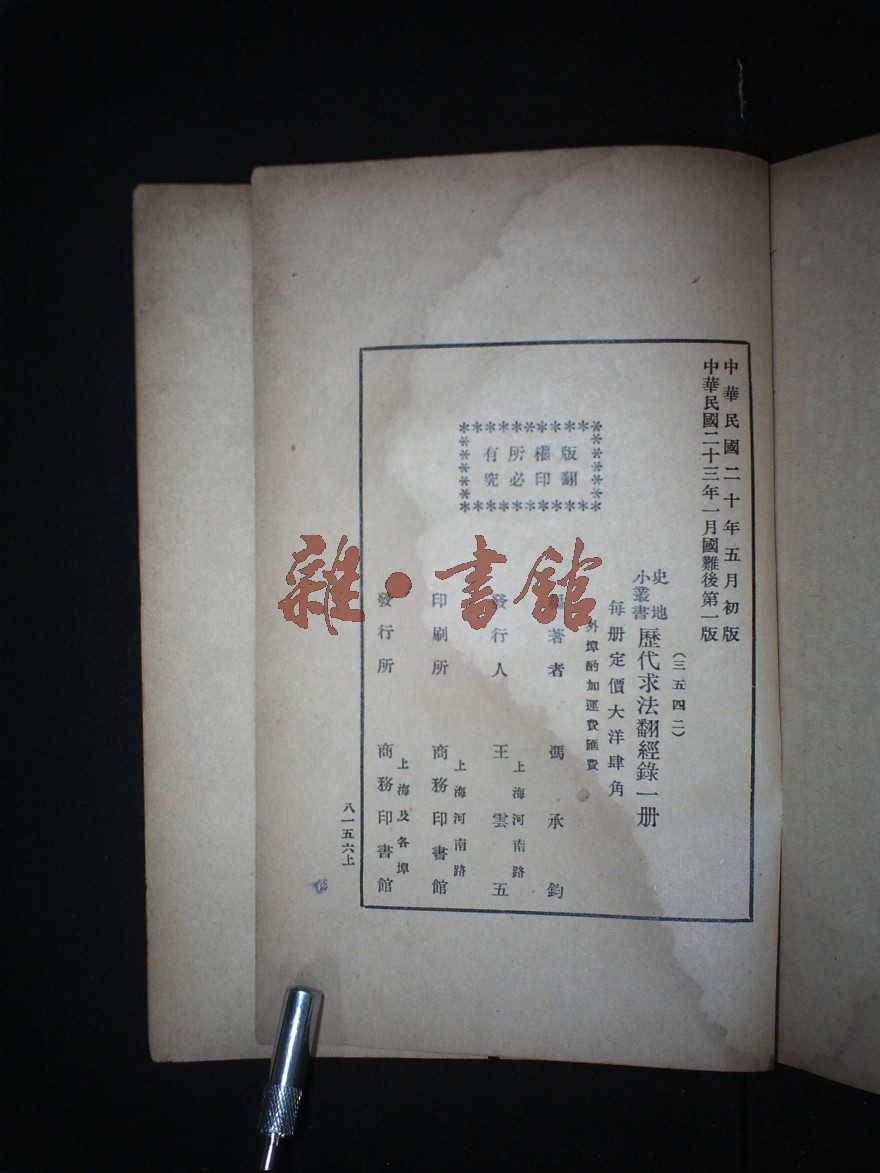 中華民國二十年五月初版
中華民國二十三年一月國難後第一版
(三五四二)
史地
小叢書
歷代求法翻經錄一册
每册定價大洋肆角
外埠酌加運費匯費
版權所有
翻印必究
著者 馮承鈞
上海河南路
發行人 王雲五
上海河南路
印刷所 商務印書館
上海及各埠
發行所 商務印書館
八一五六上
雜·書館